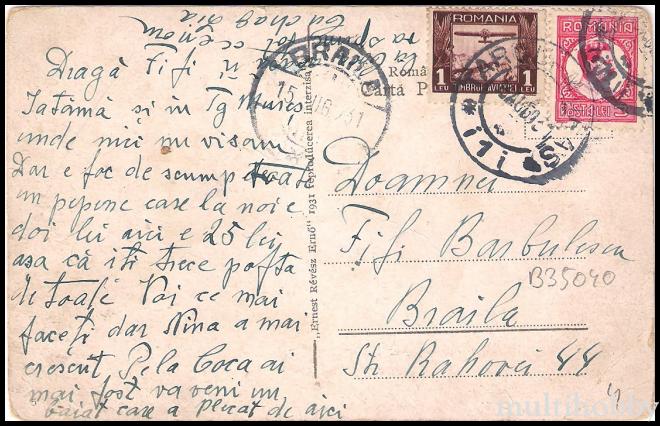 Dragă Fifi
Iatămă și în Tg Mureș
unde nici nu visam
Dar e foc de scump toate
un pepene care la noi e
doi lei aici e 25 lei
așa că iti trece pofta
de toate Voi ce mai
faceți dar Nina a mai
crescut Pela Coca ai
mai fost va veni un
baiat care a plecat de aici
la
ca
ROMANIA
1 1
LEU TIMBRUL AVIAȚIEI LEU
ROMANIA
POSTA LEI
BRAILA
15
31
Româ
artă P
"Ernest Révész Ernő" 1931 reproducerea interzisă
Doamnei
Fifi Barbulescu
B35040
Braila
Str Rahovei 44
multihobby